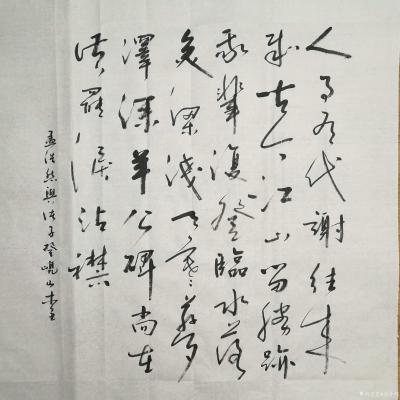 人事有代謝往来
成古今江山留勝跡
我輩復登臨水落
魚梁浅天寒夢
澤深羊公碑尚在
读罷淚沾襟
孟浩然與诸子登峴山